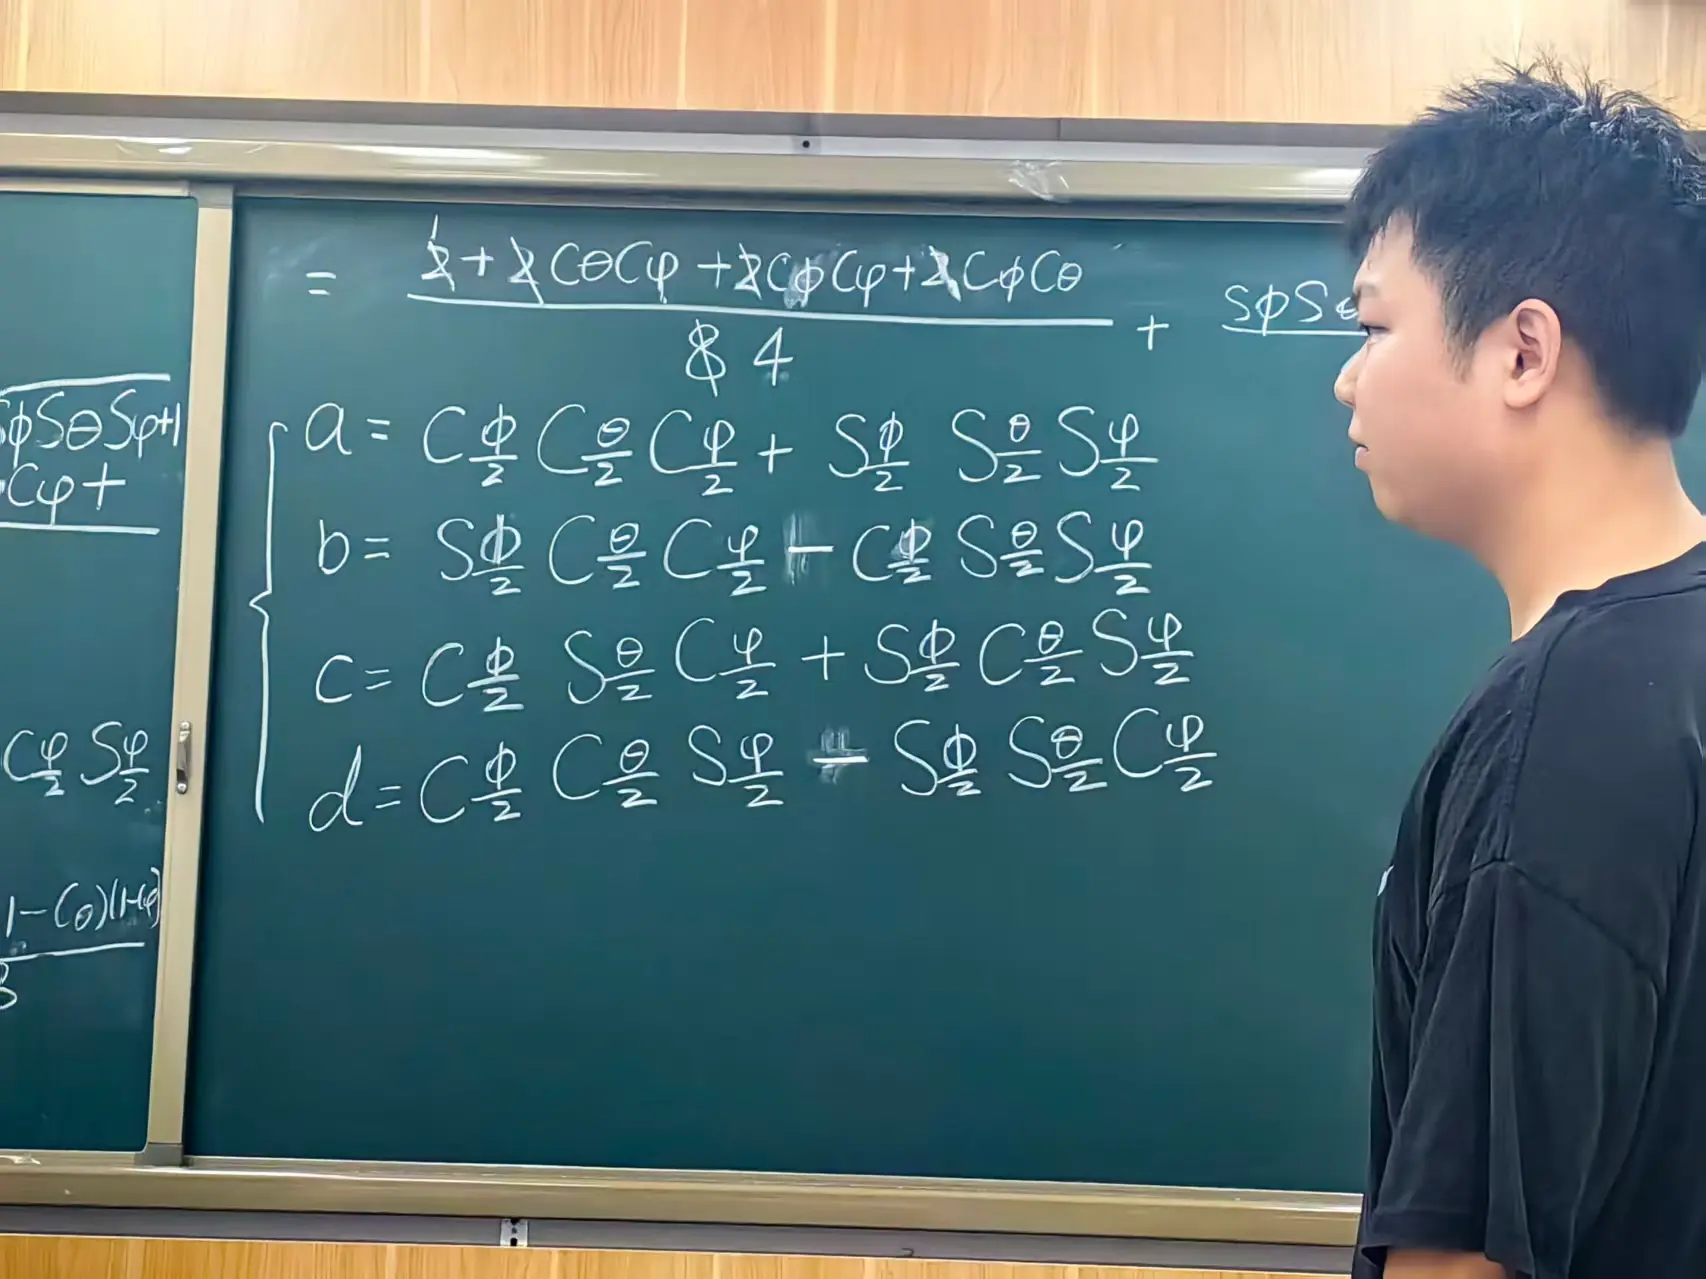 ϕSθSψ+1
Cψ+
Cψ/2 Sψ/2
1-Cθ)(1-Cψ)
8
= (1+2CθCψ+2CϕCψ+2CϕCθ)/(8 4) + SϕSθ
a= Cϕ/2 Cθ/2 Cψ/2 + Sϕ/2 Sθ/2 Sψ/2
b= Sϕ/2 Cθ/2 Cψ/2 - Cϕ/2 Sθ/2 Sψ/2
c= Cϕ/2 Sθ/2 Cψ/2 + Sϕ/2 Cθ/2 Sψ/2
d= Cϕ/2 Cθ/2 Sψ/2 - Sϕ/2 Sθ/2 Cψ/2